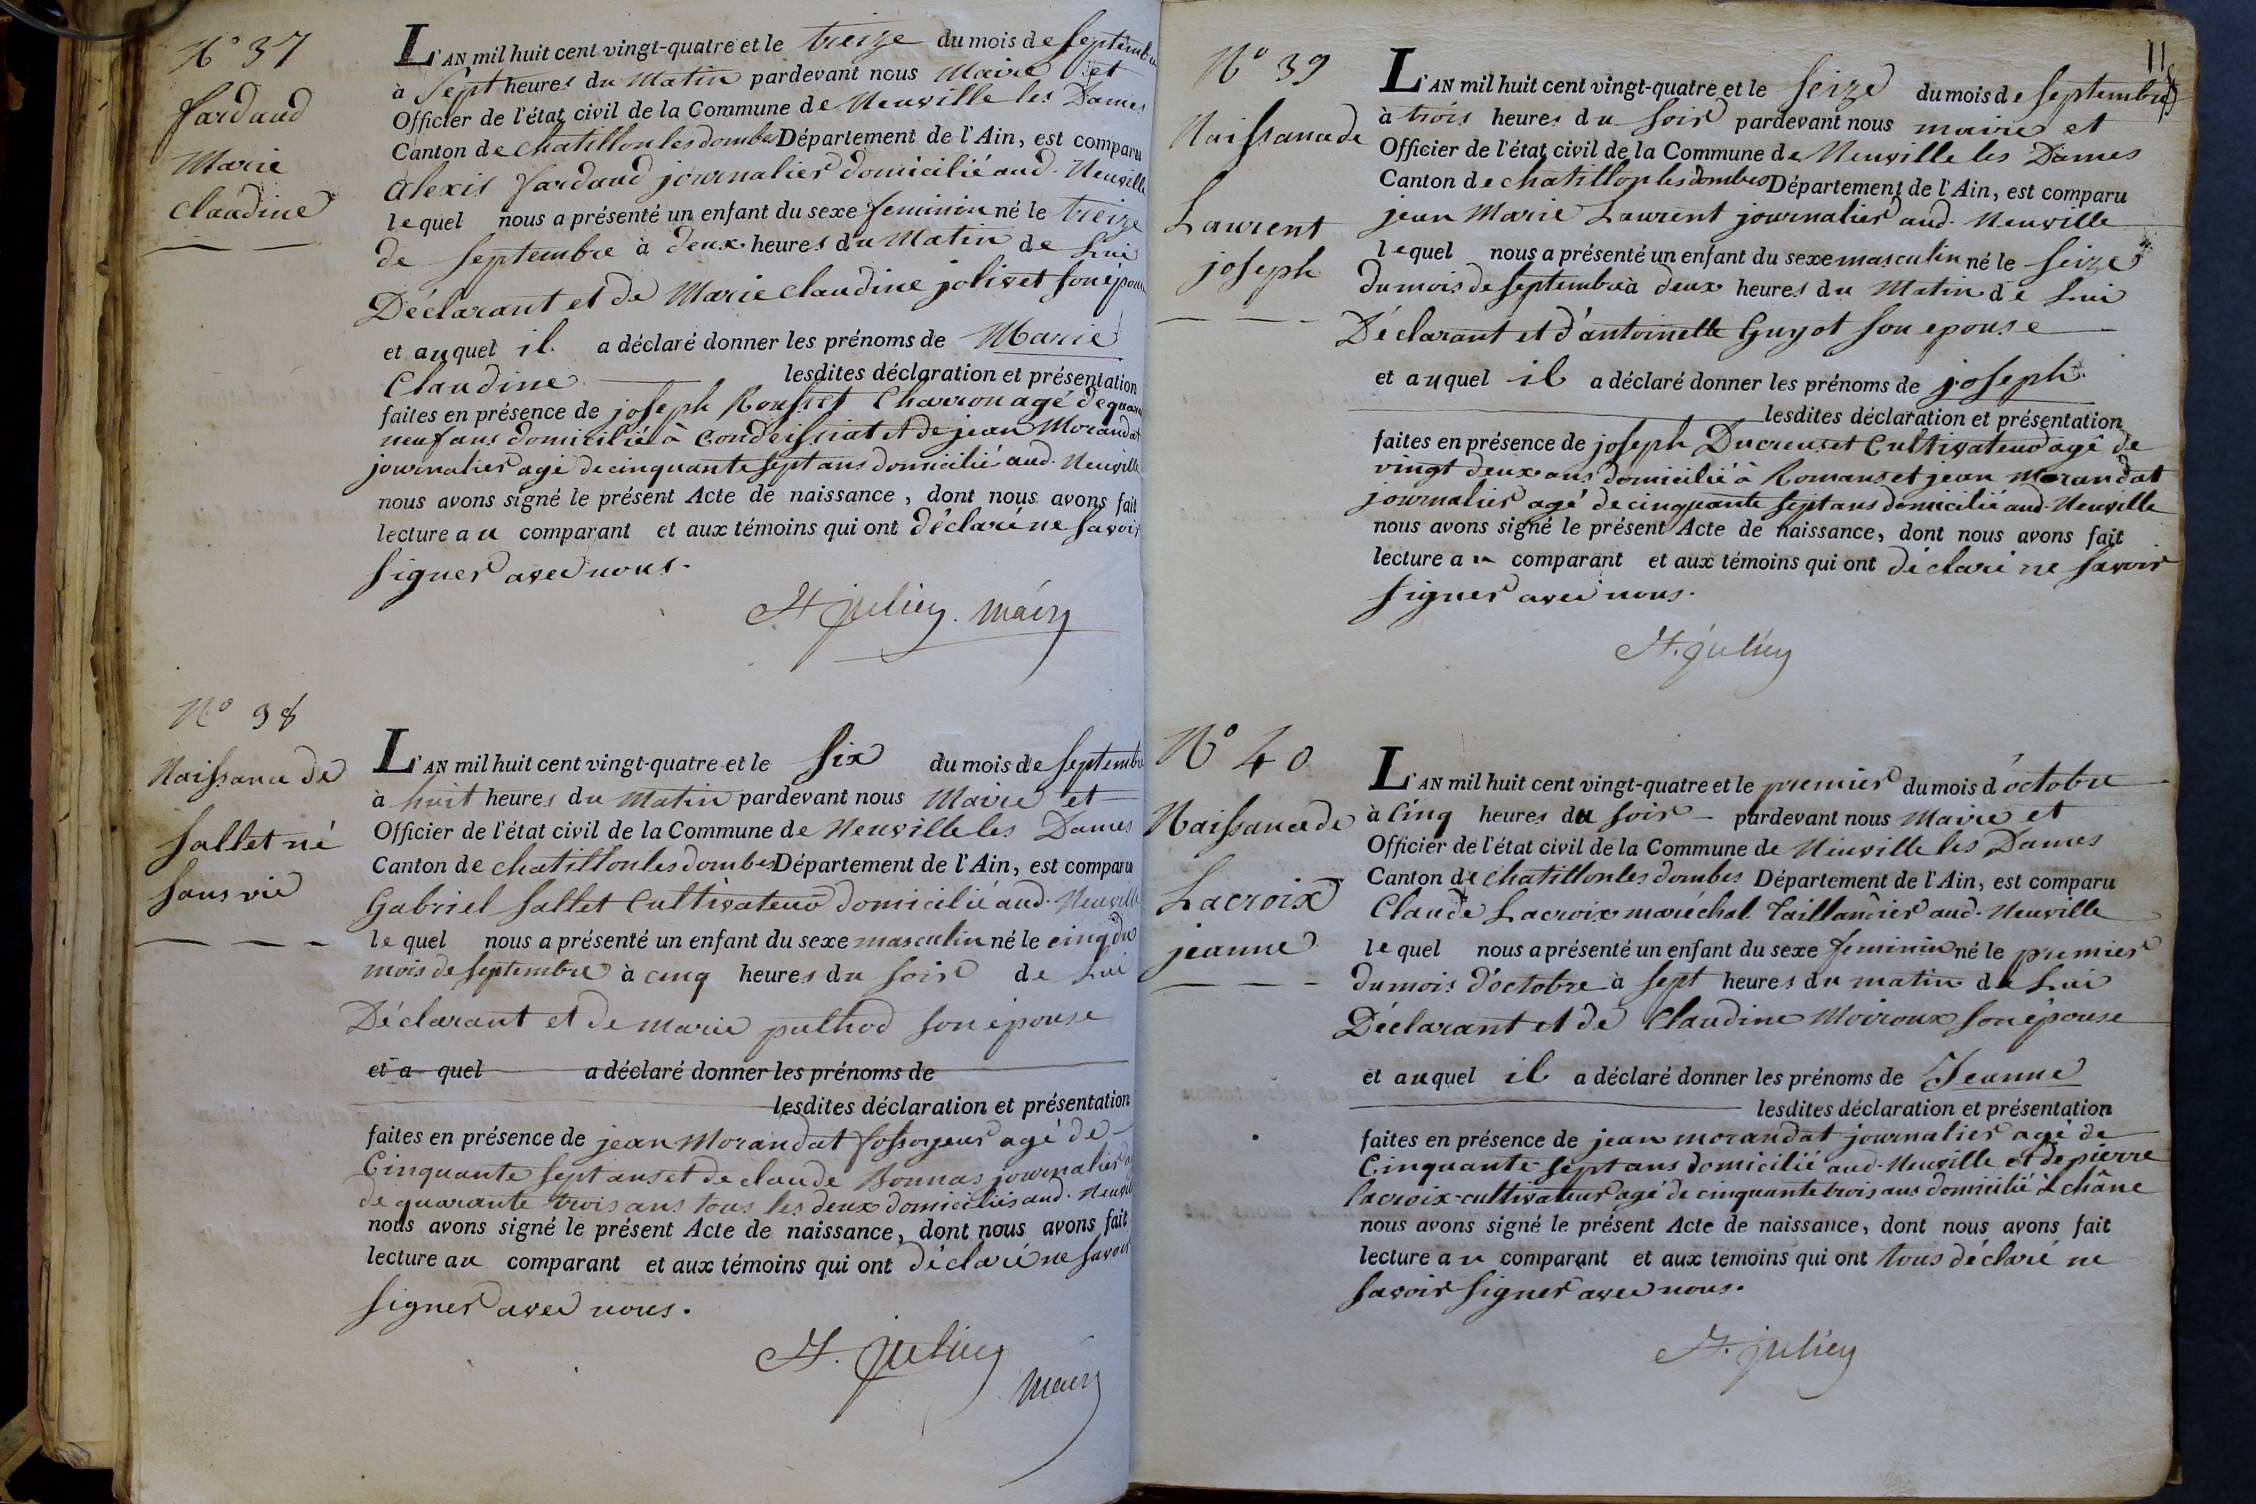 N° 37
fardaud
Marie
Claudine
L'AN mil huit cent vingt-quatre et le treize du mois de septembre
à sept heures du Matin pardevant nous Maire et
Officier de l'état civil de la Commune de Neuville les Dames
Canton de chatillon les dombes Département de l'Ain, est comparu
alexis fardaud journalier domicilié aud. Neuville
lequel nous a présenté un enfant du sexe feminin né le treize
de septembre à deux heures du Matin de Lui
Déclarant et de Marie claudine jolivet son épouse
et auquel il a déclaré donner les prénoms de Marie
Claudine lesdites déclaration et présentation
faites en présence de joseph Rousset Charron agé de quara
neuf ans domicilié à Condeissiat et de jean Morandat
journalier agé de cinquante sept ans domicilié aud. Neuville
nous avons signé le présent Acte de naissance, dont nous avons fait
lecture au comparant et aux témoins qui ont déclaré ne savoir
signer avec nous.
St julien. maire
N° 38
Naissance de
sallet né
sans vie
L'AN mil huit cent vingt-quatre et le six du mois de septembre
à huit heures du Matin pardevant nous Maire et
Officier de l'état civil de la Commune de Neuville les Dames
Canton de chatillon les dombes Département de l'Ain, est comparu
Gabriel sallet Cultivateur domicilié aud. Neuville
lequel nous a présenté un enfant du sexe masculin né le cinq du
mois de septembre à cinq heures du soir de Lui
Déclarant et de marie pulhod son épouse
et a quel a déclaré donner les prénoms de
lesdites déclaration et présentation
faites en présence de jean Morandat fossoyeur agé de
Cinquante sept ans et de claude Bonnas journalier ag
de quarante trois ans tous les deux domiciliés aud. Neuville
nous avons signé le présent Acte de naissance, dont nous avons fait
lecture au comparant et aux témoins qui ont déclaré ne savoir
signer avec nous.
St. julien
maire
11
N° 39
Naissance de
Laurent
joseph
L'AN mil huit cent vingt-quatre et le seize du mois de septembre
à trois heures du soir pardevant nous maire et
Officier de l'état civil de la Commune de Neuville les Dames
Canton de chatillon les dombes Département de l'Ain, est comparu
jean Marie Laurent journalier aud. Neuville
lequel nous a présenté un enfant du sexe masculin né le seize
du mois de septembre à deux heures du Matin de Lui
Déclarant et d'antoinette Guyot son epouse
et auquel il a déclaré donner les prénoms de joseph
lesdites déclaration et présentation
faites en présence de joseph Ducreuset Cultivateur agé de
vingt deux ans domicilié à Romans et jean Morandat
journalier agé de cinquante sept ans domicilié aud. Neuville
nous avons signé le présent Acte de naissance, dont nous avons fait
lecture au comparant et aux témoins qui ont déclaré ne savoir
signer avec nous.
St. julien
N° 40
Naissance de
Lacroix
jeanne
L'AN mil huit cent vingt-quatre et le premier du mois d'octobre
à Cinq heures du soir pardevant nous Maire et
Officier de l'état civil de la Commune de Neuville les Dames
Canton de chatillon les dombes Département de l'Ain, est comparu
Claude Lacroix maréchal Taillandier aud. Neuville
lequel nous a présenté un enfant du sexe feminin né le premier
du mois d'octobre à sept heures du matin de Lui
Déclarant et de Claudine Moiroux son épouse
et auquel il a déclaré donner les prénoms de Jeanne
lesdites déclaration et présentation
faites en présence de jean morandat journalier agé de
Cinquante sept ans domicilié aud. Neuville et de pierre
lacroix cultivateur agé de cinquante trois ans domicilié à L châne
nous avons signé le présent Acte de naissance, dont nous avons fait
lecture au comparant et aux témoins qui ont tous déclaré ne
savoir signer avec nous.
St. julien